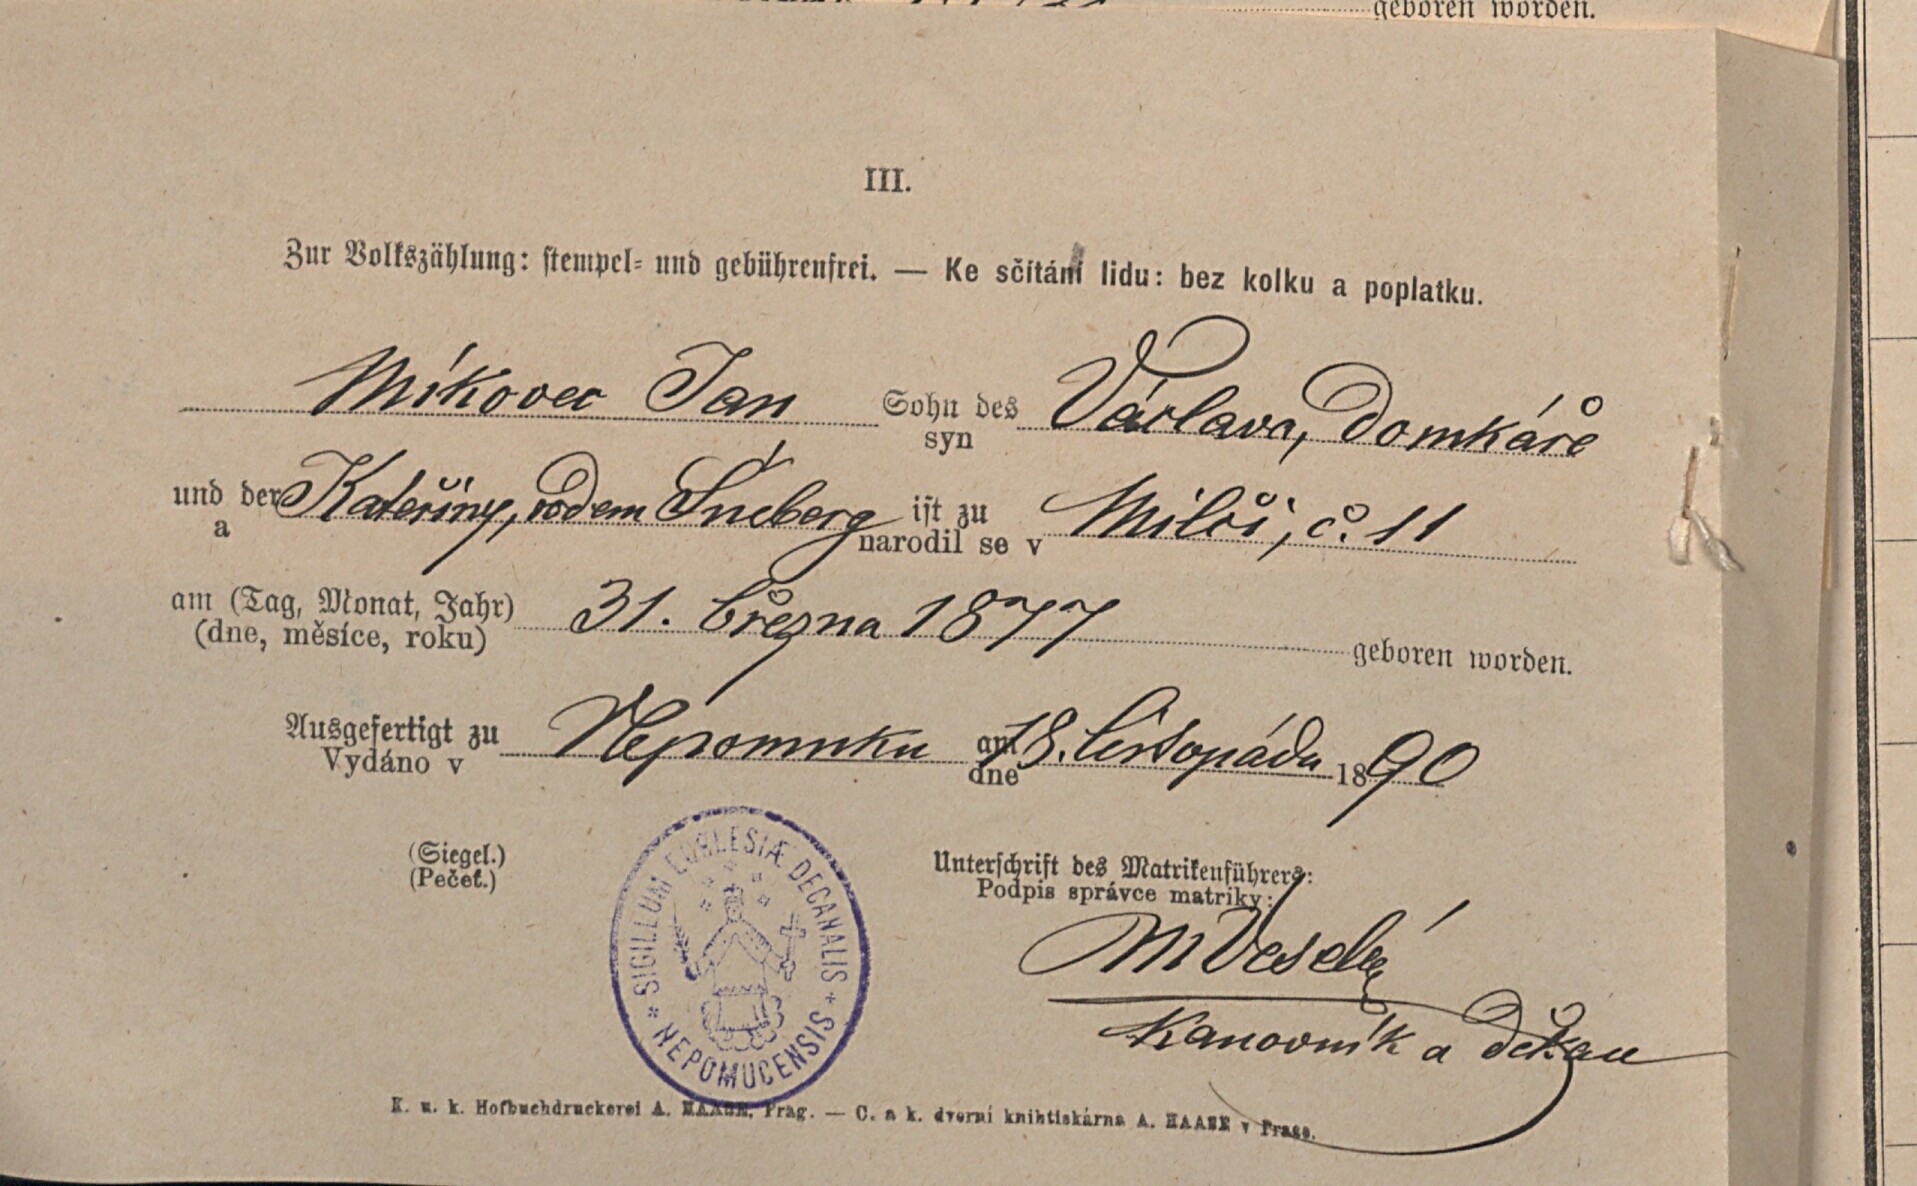 geboren worden.
III.
Zur Volkszählung: stempel- und gebührenfrei. — Ke sčítání lidu: bez kolku a poplatku.
Míkovec Jan Sohn des Václava, domkáře
syn
und der Kateřiny, rodem Šneberg ist zu Milči, č. 11
a narodil se v
am (Tag, Monat, Jahr) 31. března 1877 geboren worden.
(dne, měsíce, roku)
Ausgefertigt zu Nepomuku am 18. listopadu 1890
Vydáno v dne
(Siegel.) Unterschrift des Matrikenführers:
(Pečeť.) Podpis správce matriky:
SIGILLUM ECCLESIÆ DECANALIS
NEPOMUCENSIS
M Veselý
Kanovník a děkan
K. u. k. Hofbuchdruckerei A. HAASE, Prag. — C. a k. dvorní knihtiskárna A. HAASE v Praze.